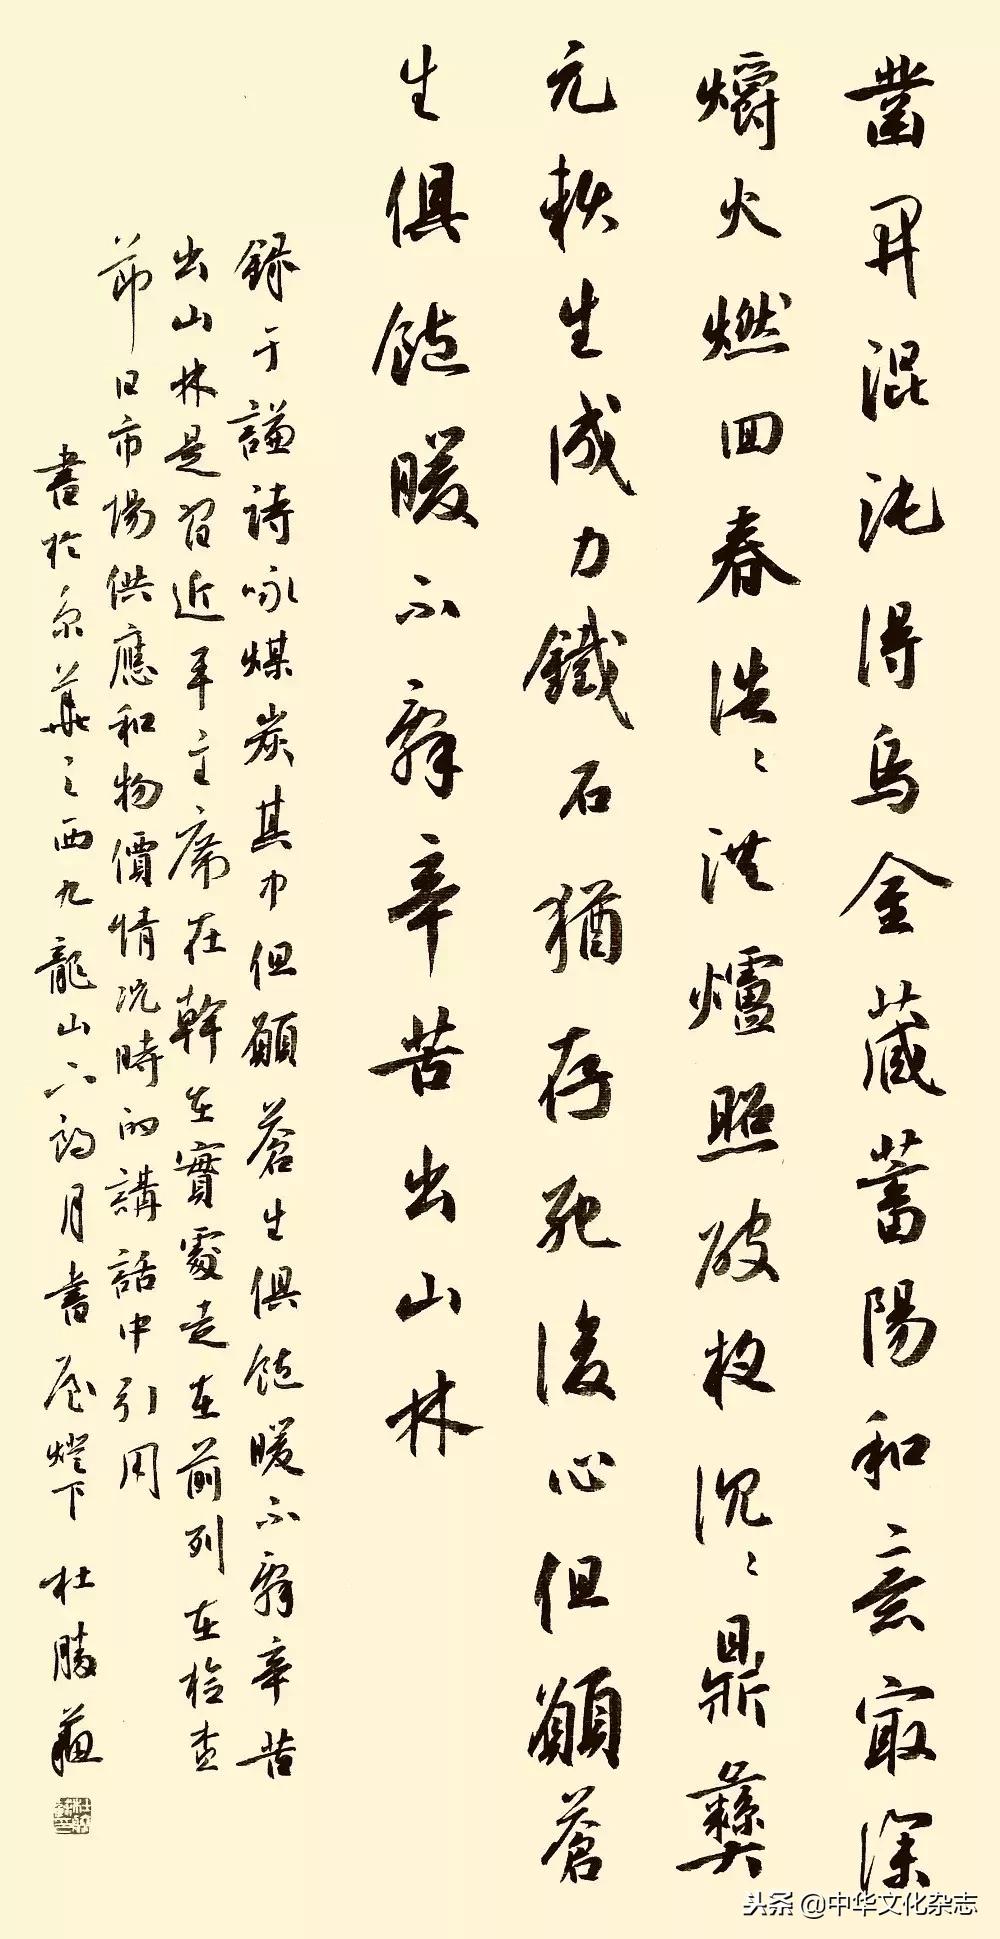 凿開混沌得烏金藏蓄陽和意冣深
爝火燃回春浩〻洪爐照破夜沉〻鼎彝
元賴生成力鐵石猶存死後心但願蒼
生俱飽暖不辭辛苦出山林
録于謙詩咏煤炭其中但願蒼生俱飽暖不辭辛苦
出山林是習近平主席在幹在實處走在前列在檢查
節日市場供應和物價情況時的講話中引用
書於京華之西九龍山下朗月書屋燈下 杜勝
头条 @中华文化杂志